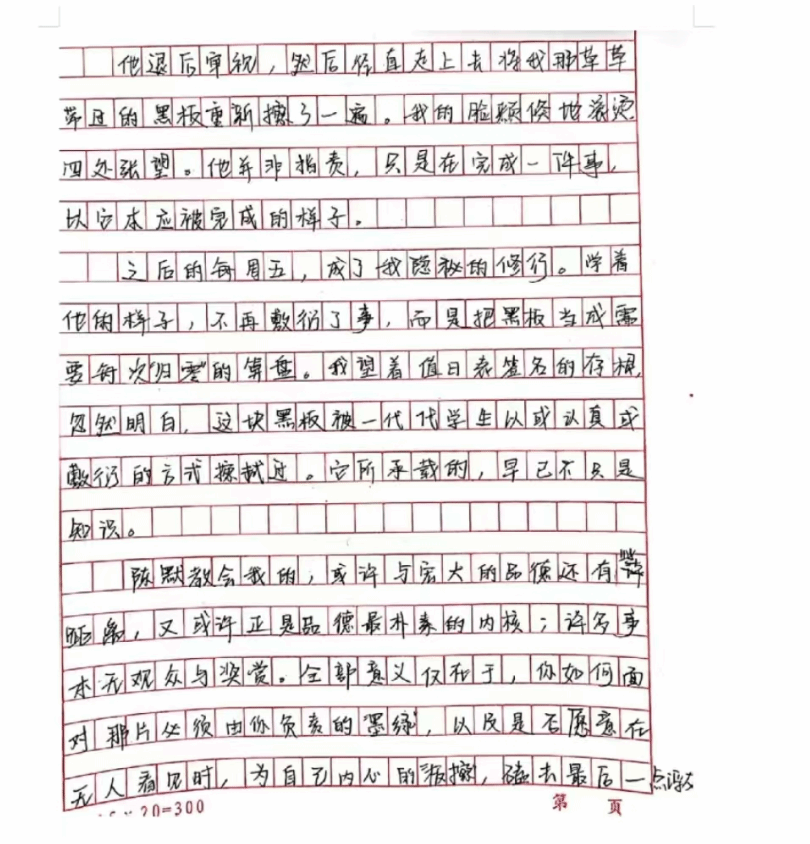 他退后审视，然后径直走上去将我那草草
带过的黑板重新擦了一遍。我的脸颊倏地滚烫
四处张望。他并非指责，只是在完成一件事，
以它本应被完成的样子。
之后的每周五，成了我隐秘的修行。学着
他的样子，不再敷衍了事，而是把黑板当成需
要每次“归零”的算盘。我望着值日表签名的存根，
忽然明白，这块黑板被一代代学生以或认真或
敷衍的方式擦拭过。它所承载的，早已不只是
知识。
陈默教会我的，或许与宏大的品德还有些
距离，又或许正是品德最朴素的内核；许多事
本无观众与奖赏。全部意义仅在于，你如何面
对那片必须由你负责的“墨绿”，以及是否愿意在
无人看见时，为自己内心的“板擦”，磕去最后一点
20=300
第 页